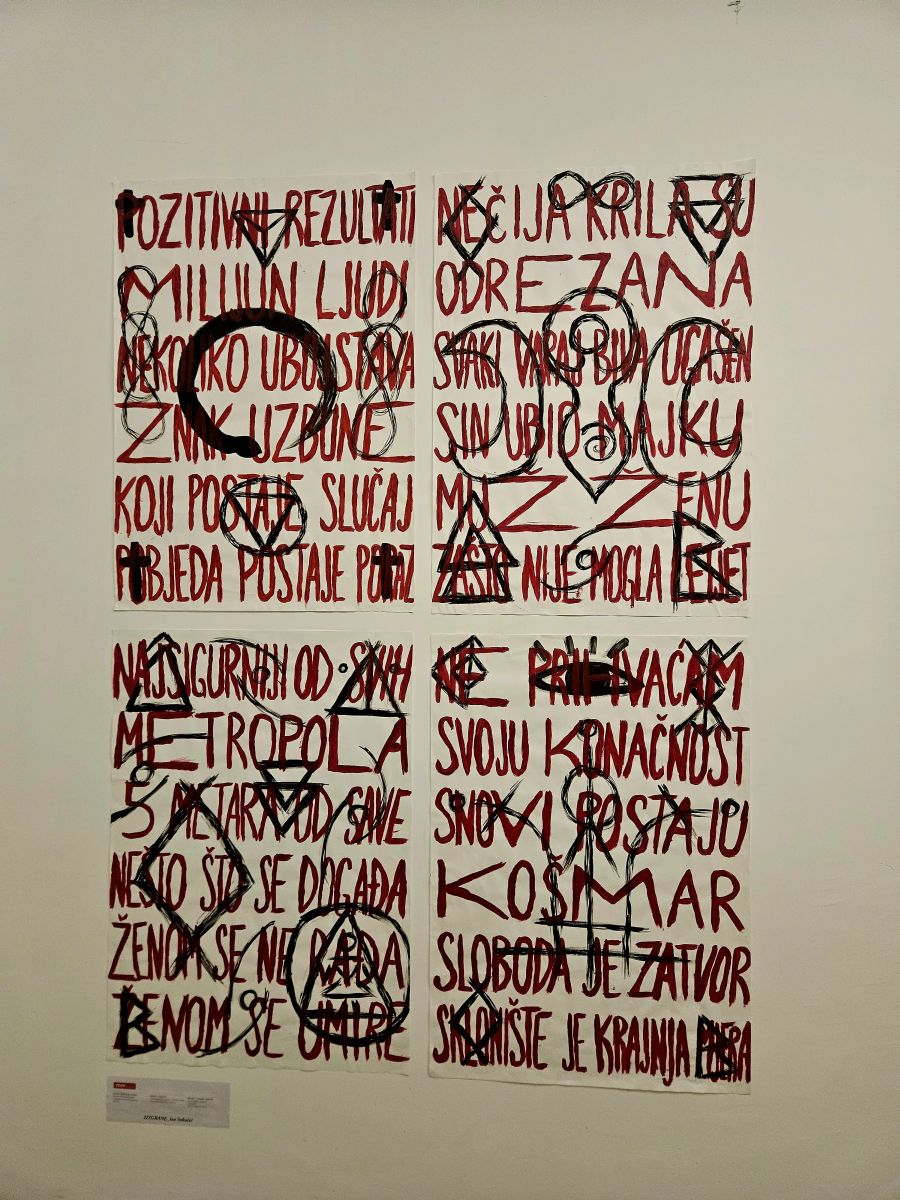 POZITIVNI REZULTATI
MILIJUN LJUDI
NEKOLIKO UBOJSTAVA
ZNAK UZBUNE
KOJI POSTAJE SLUČAJ
POBJEDA POSTAJE PORAZ
NEČIJA KRILA SU
ODREZANA
SVAKI VAPAJ BIVA UGAŠEN
SIN UBIO MAJKU
MUŽ ŽENU
ZAŠTO NIJE MOGLA LETJET
NAJSIGURNIJI OD SVIH
METROPOLA
5 METARA OD SAVE
NEŠTO ŠTO SE DOGAĐA
ŽENOM SE NE RAĐA
ŽENOM SE UMIRE
NE PRIHVAĆAM
SVOJU KONAČNOST
SNOVI POSTAJU
KOŠMAR
SLOBODA JE ZATVOR
SKLONIŠTE JE KRAJNJA MJERA